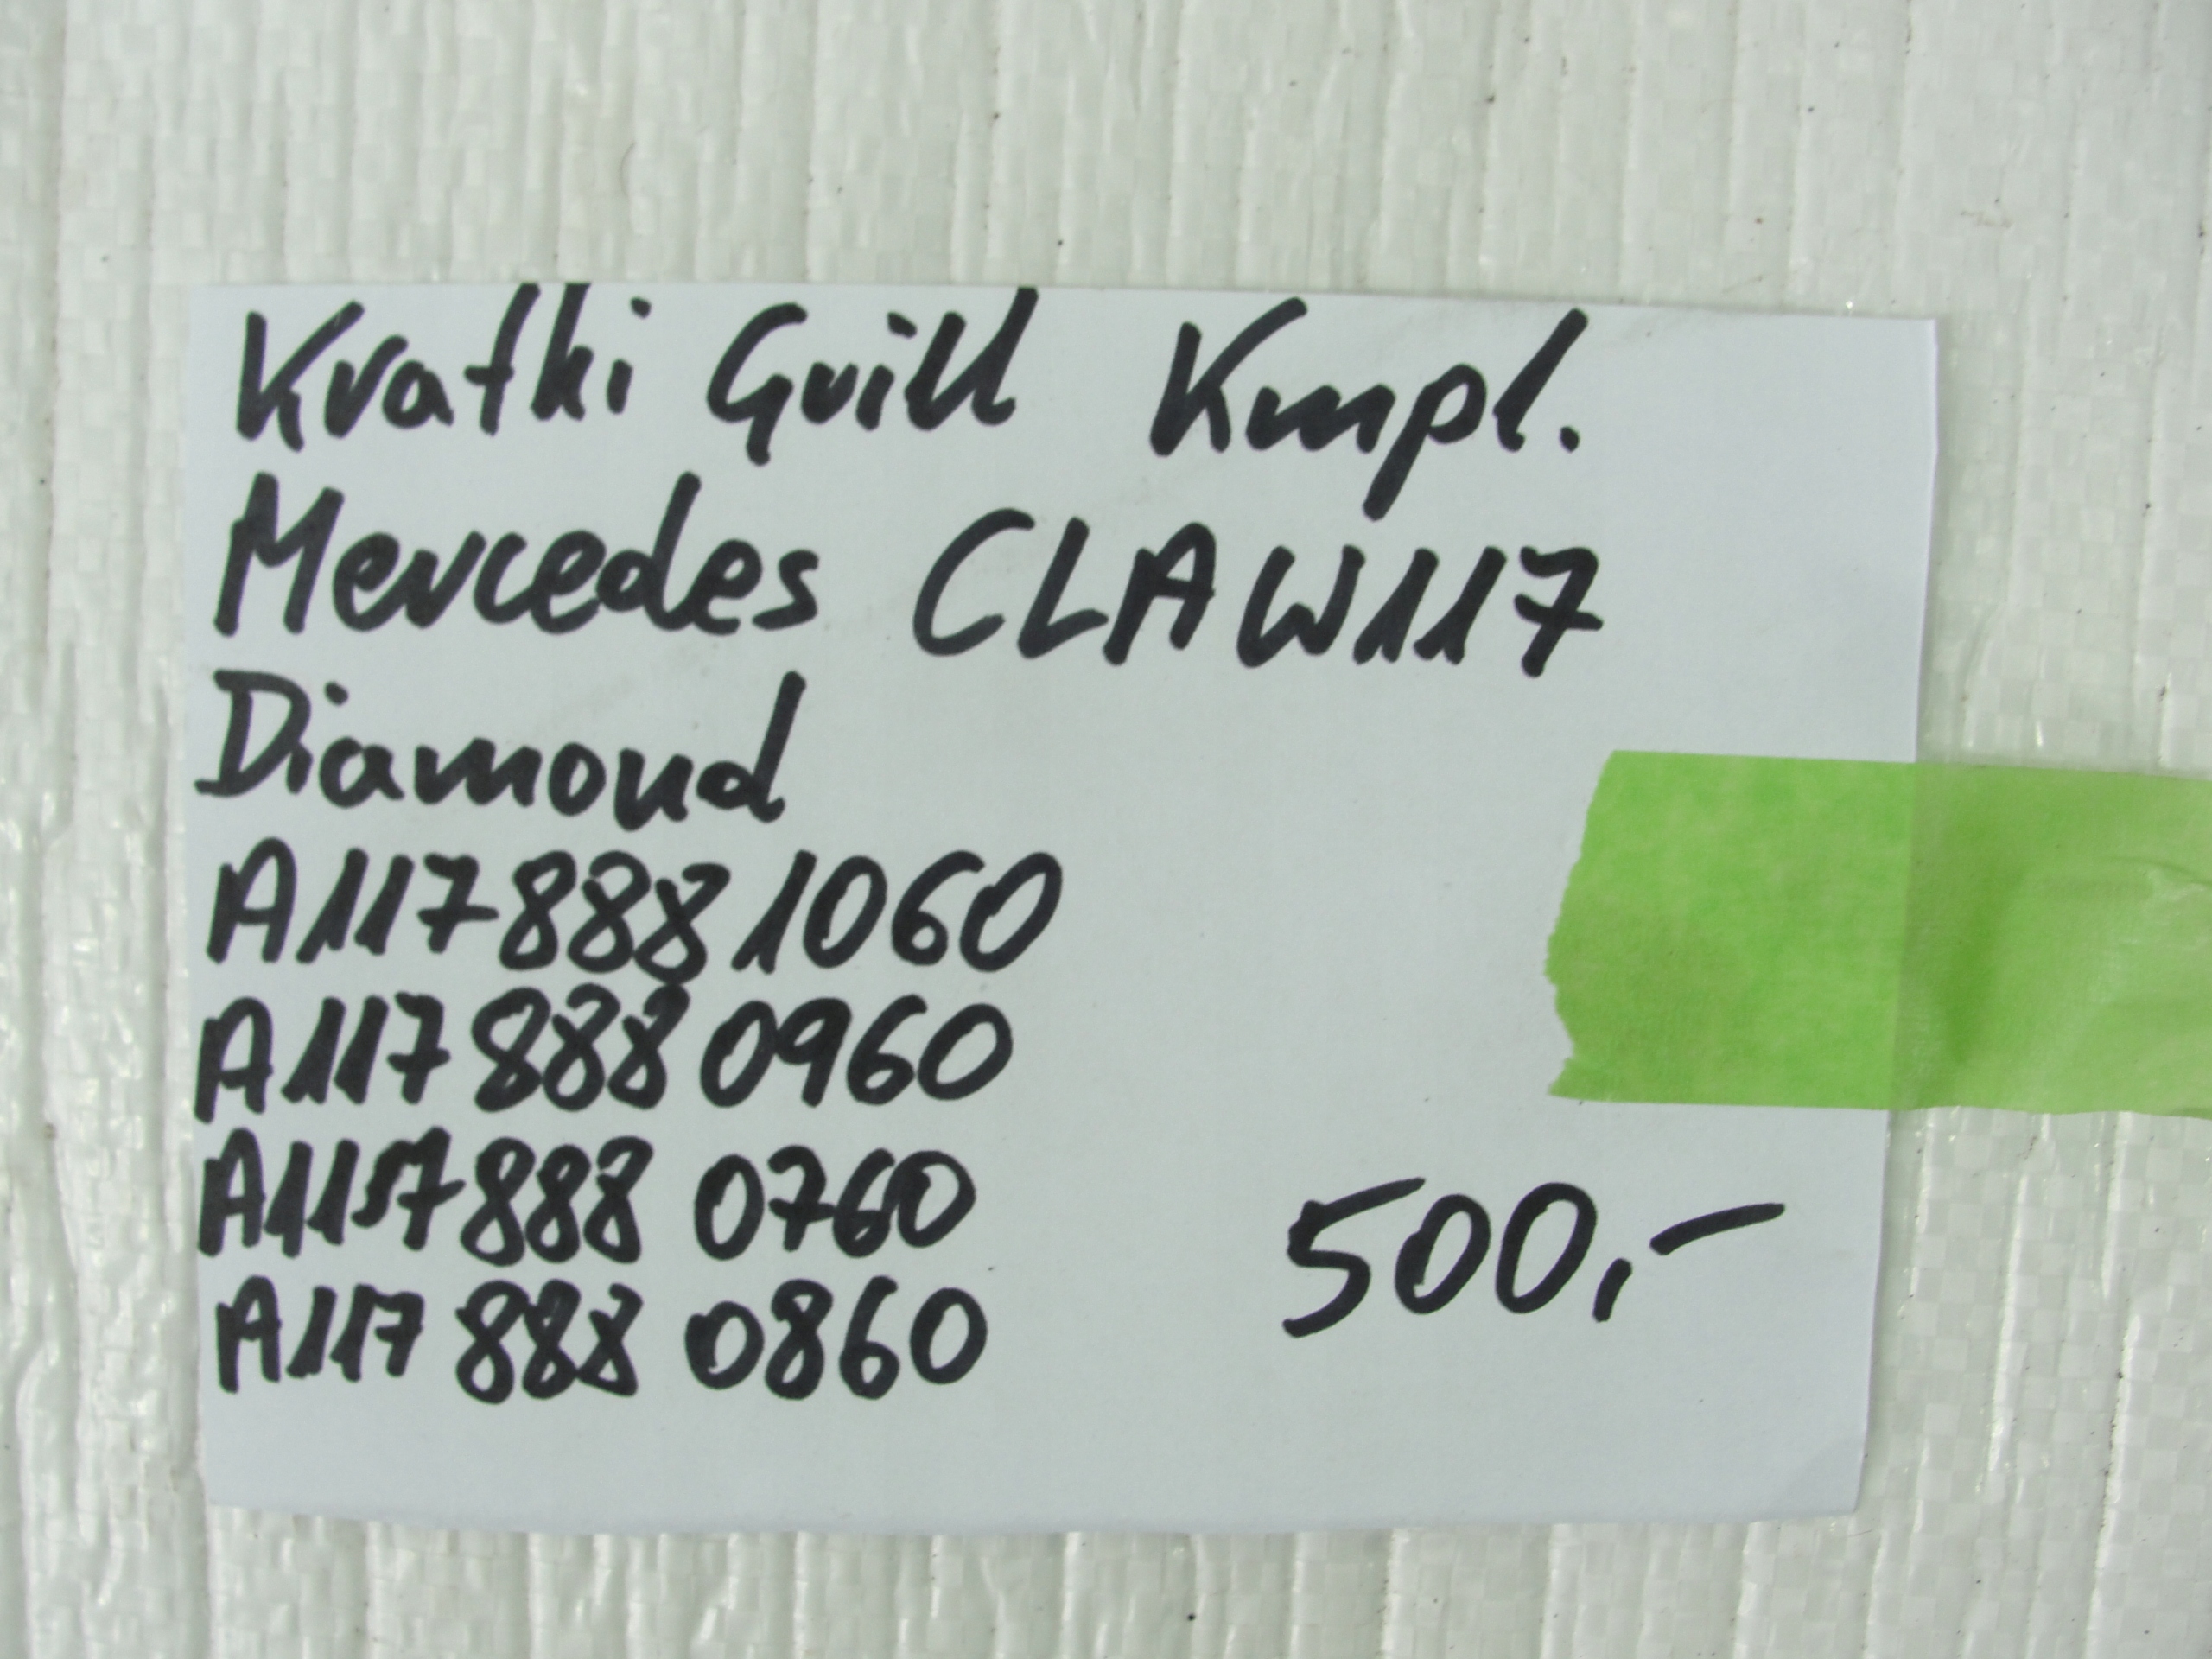 Kratki Grill Kmpl.
Mercedes CLA W117
Diamond
A117 888 1060
A117 888 0960
A117 888 0760
A117 888 0860
500,-